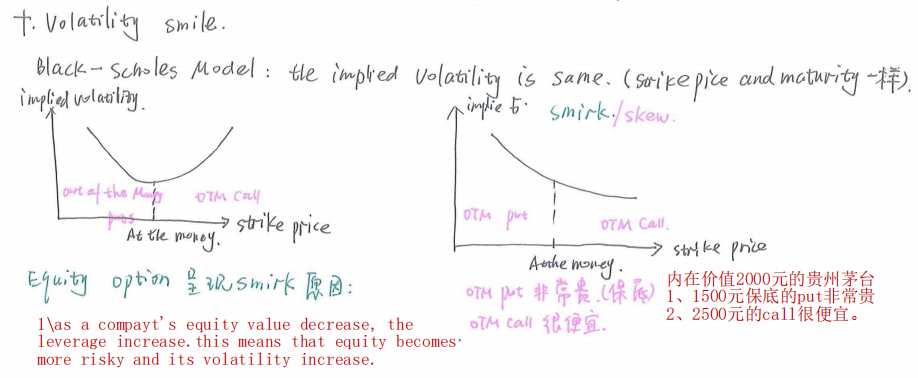 十. Volatility smile.
Black-Scholes Model: the implied volatility is same. (strike pice and maturity 一样).
implied volatility.
implie σ.
smirk./skew.
out of the Money puts
OTM Call
OTM put
OTM Call.
strike price
At the money.
strike price
At the money.
Equity option 呈现smirk 原因:
OTM put 非常贵.(保底)
OTM call 很便宜.
内在价值2000元的贵州茅台
1、1500元保底的put非常贵
2、2500元的call很便宜。
1\as a compayt's equity value decrease, the
leverage increase.this means that equity becomes
more risky and its volatility increase.